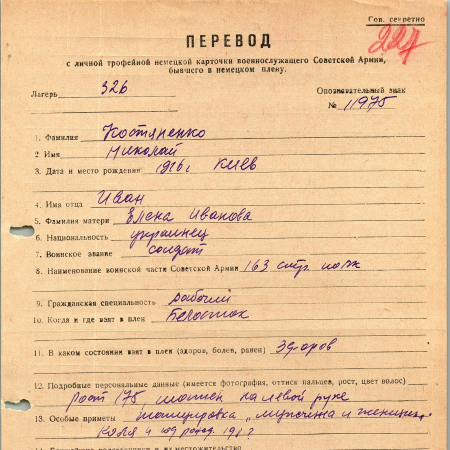 Сов. секретно
227
ПЕРЕВОД
с личной трофейной немецкой карточки военнослужащего Советской Армии,
бывшего в немецком плену.
Лагерь 326
Опознавательный знак
№ 11975
1. Фамилия Костяненко
2 Имя Николай
3. Дата и место рождения 1916г Киев
4. Имя отца Иван
5. Фамилия матери Елена Иванова
6. Национальность украинец
7. Воинское звание солдат
8. Наименование воинской части Советской Армии 163 стр. полк
9. Гражданская специальность рабочий
10. Когда и где взят в плен Белосток
11. В каком состоянии взят в плен (здоров, болен, ранен) Здоров
12. Подробные персональные данные (имеется фотография, оттиск пальцев, рост, цвет волос)
рост 175 на левой руке
13. Особые приметы татуировка „мужчина и женщина"
Коля и год рожд. 19